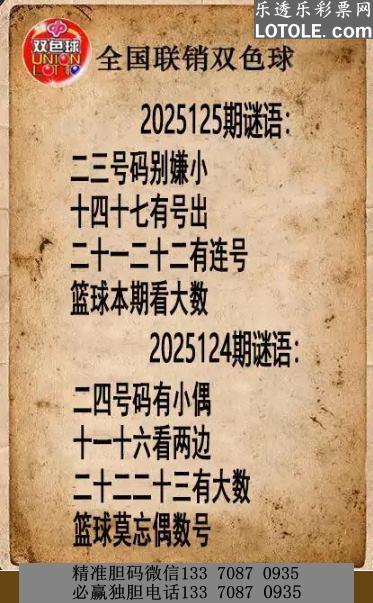 乐透乐彩票网
LOTOLE.COM
双色球
UNION
LOTTO
全国联销双色球
2025125期谜语：
二三号码别嫌小
十四十七有号出
二十一二十二有连号
篮球本期看大数
2025124期谜语：
二四号码有小偶
十一十六看两边
二十二二十三有大数
篮球莫忘偶数号
精准胆码微信133 7087 0935
必赢独胆电话133 7087 0935